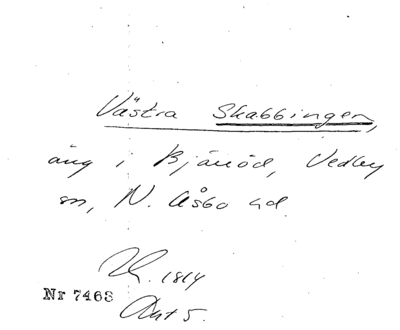 Västra Skabbingen,
äng i Bjäröd, Vedby
sn, N. Åsbo hd.
1814
Nr 7468
Akt 5.